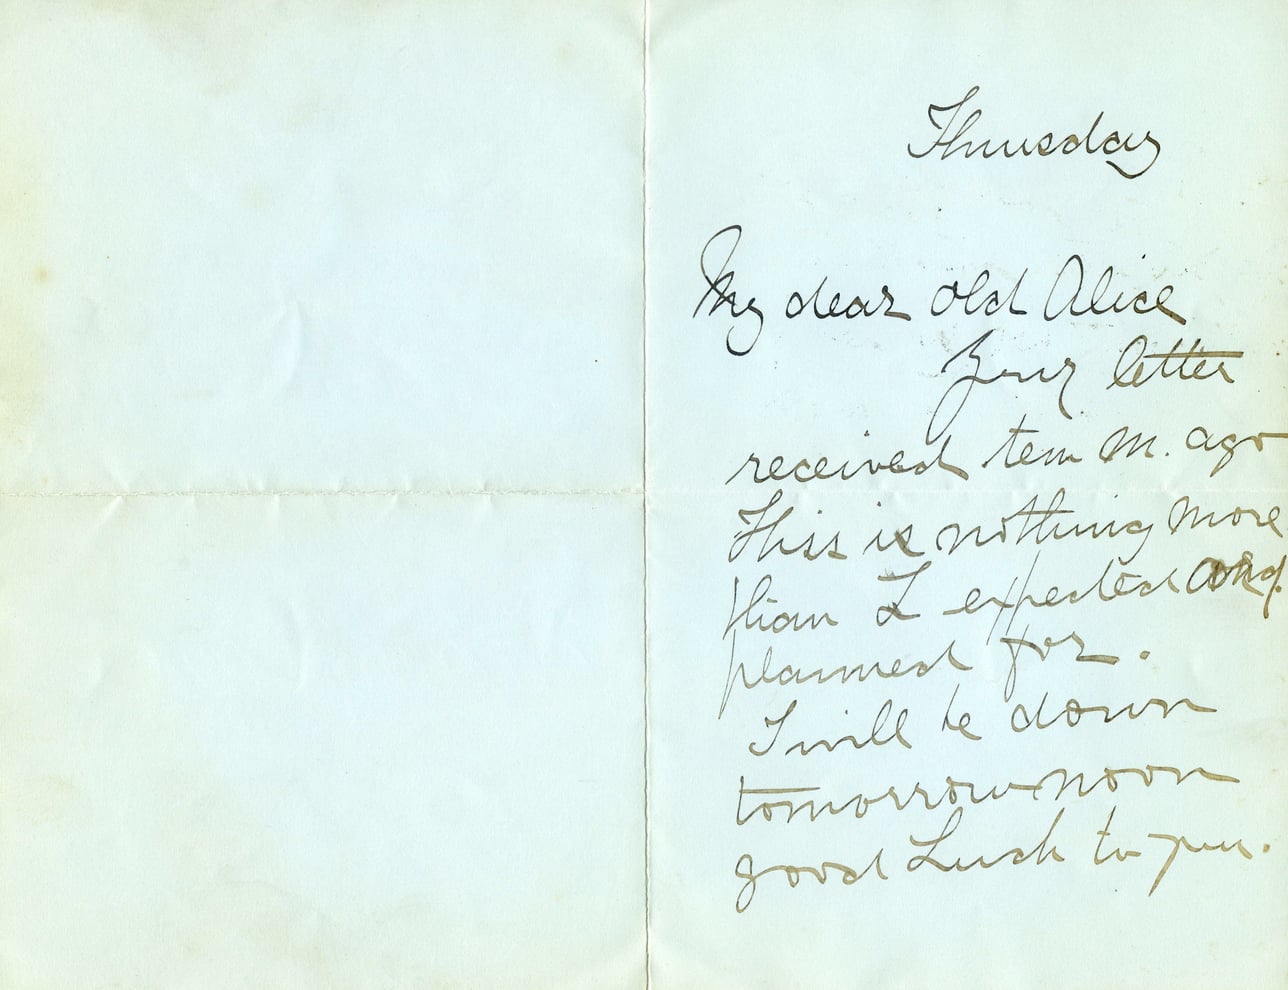 Thursday
My dear old Alice
Your letter
received ten m. ago
This is nothing more
than I expected and
planned for.
I will be down
tomorrow noon
good Luck to you.